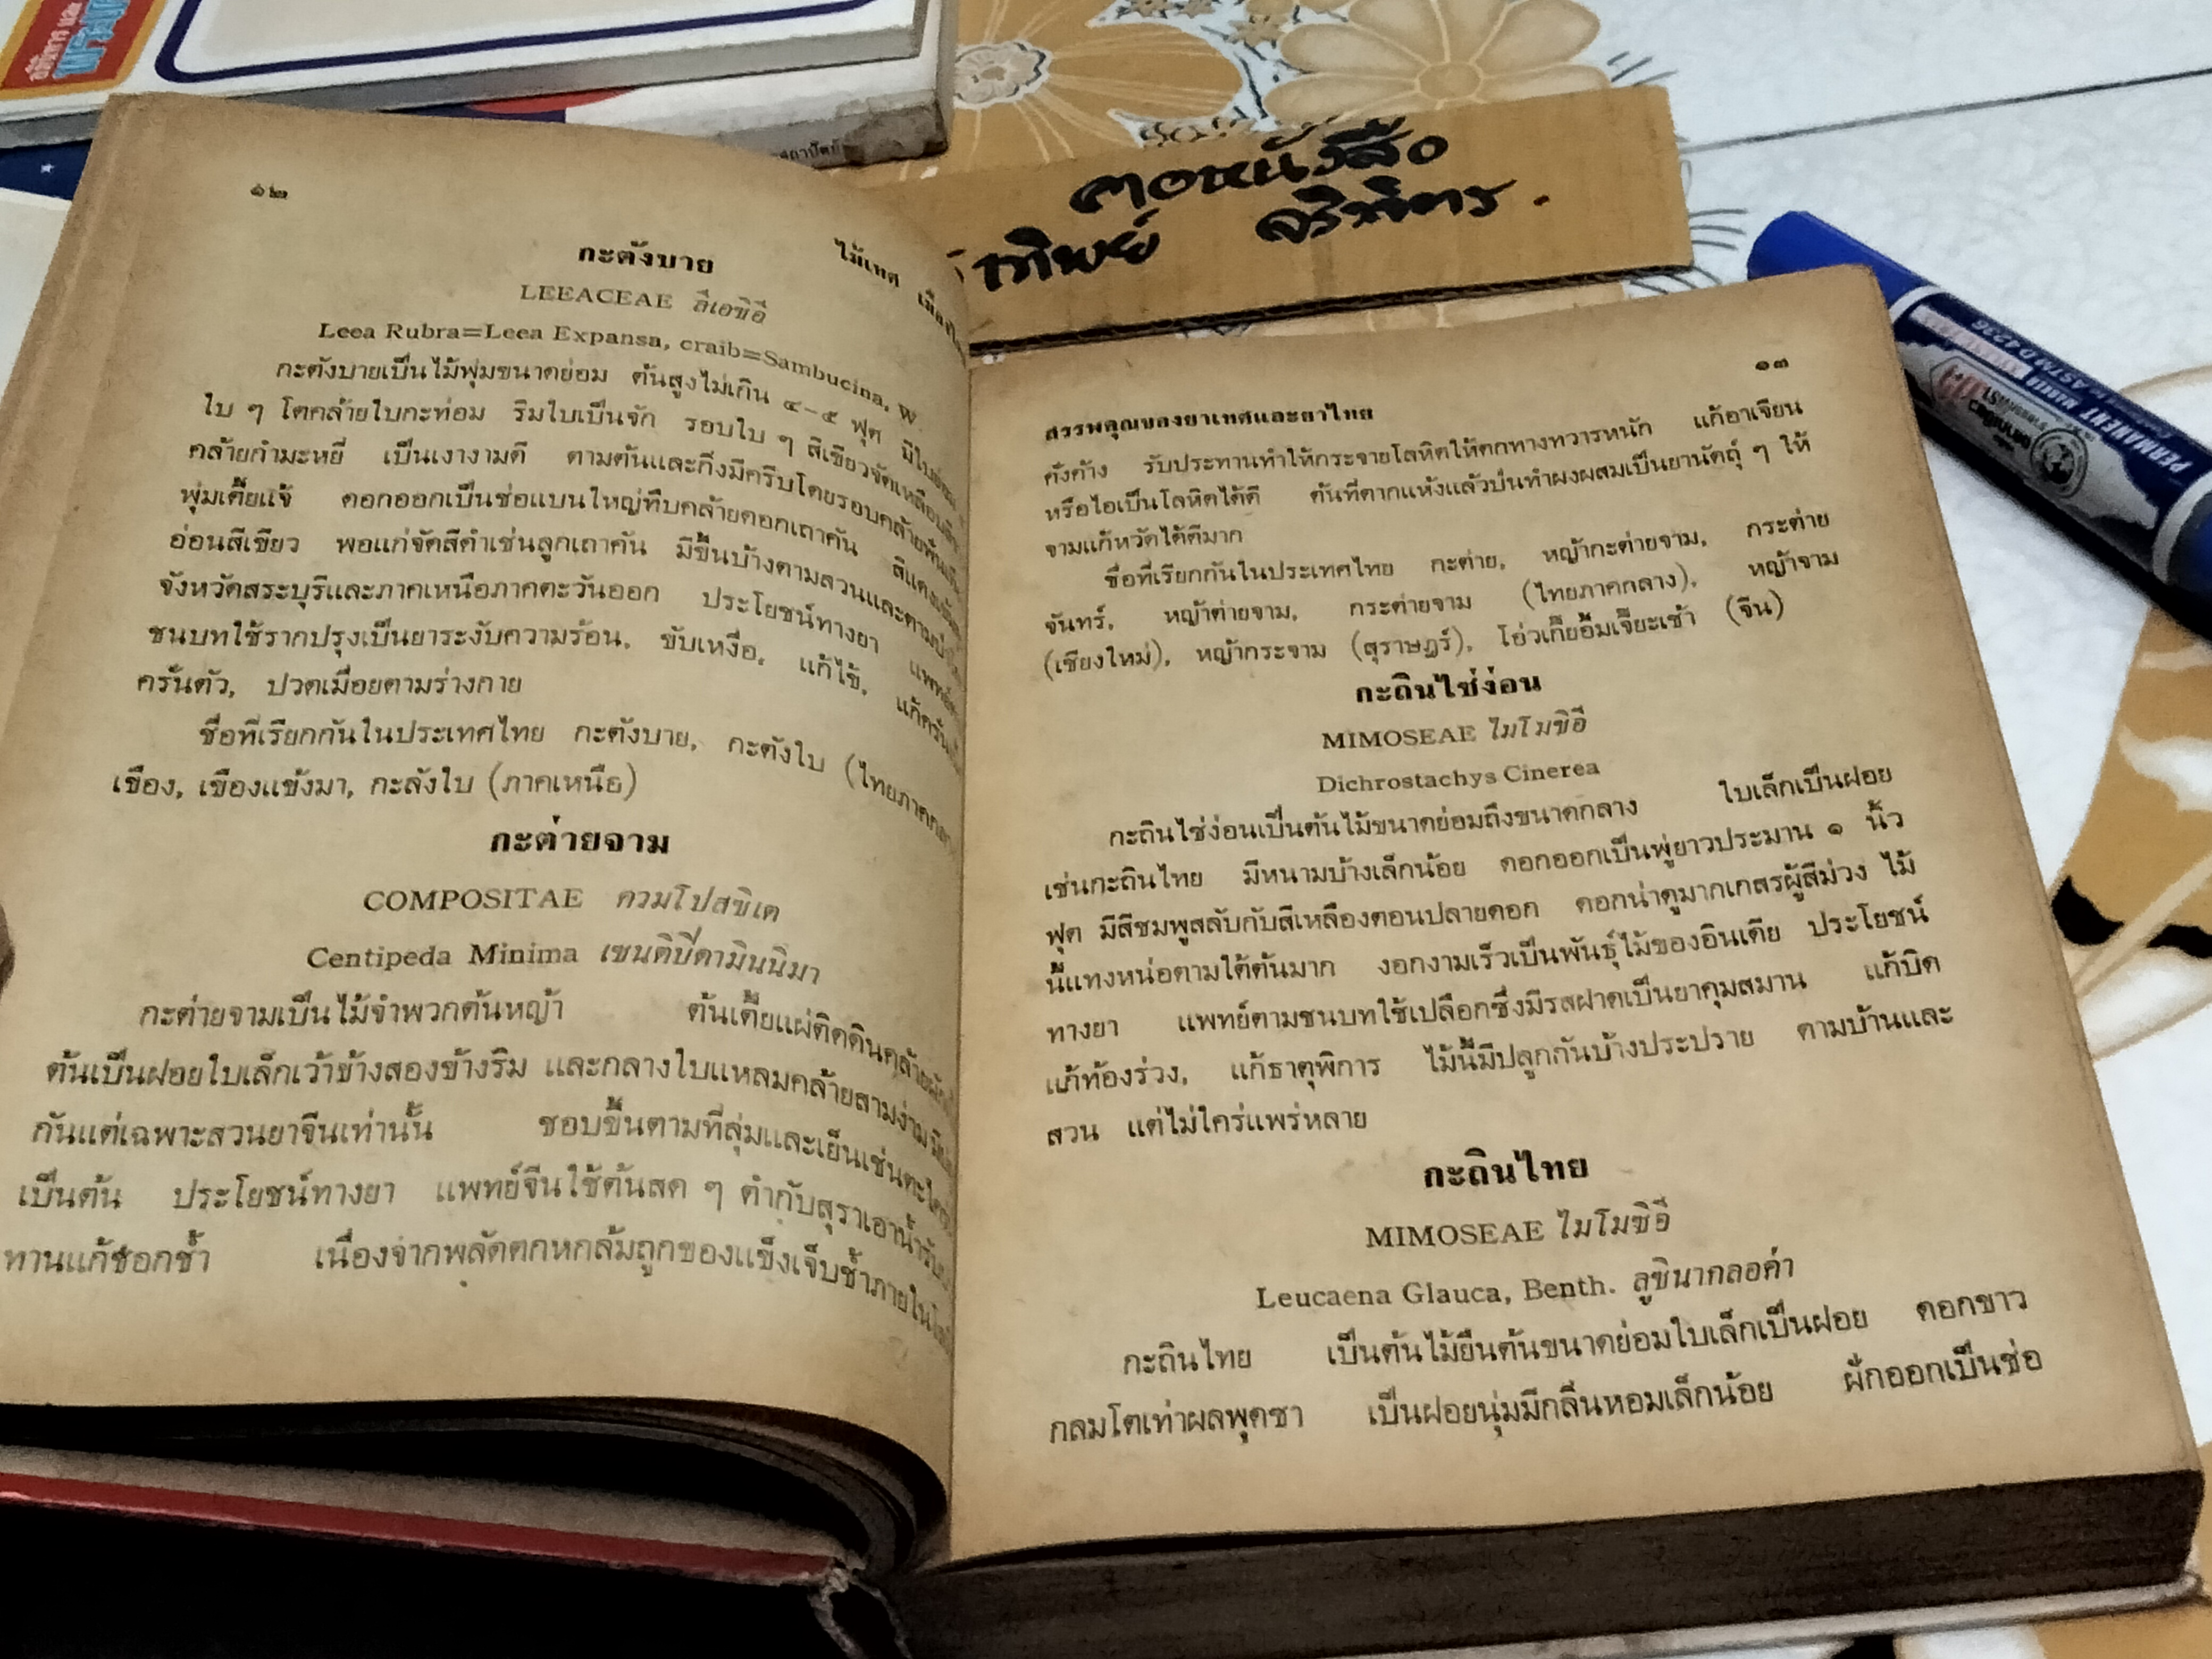 ๑๒
ไม้เทศ
กะตังบาย
LEEACEAE ลีเอซิอี
Leea Rubra=Leea Expansa, craib=Sambucina, W.
กะตังบายเป็นไม้พุ่มขนาดย่อม ต้นสูงไม่เกิน ๔–๕ ฟุต
ใบ ๆ โตคล้ายใบกะท่อม ริมใบเป็นจัก รอบใบ ๆ สีเขียวจัดเหลือบ
คล้ายกำมะหยี่ เป็นเงางามดี ตามต้นและกิ่งมีครีบโดยรอบคล้าย
พุ่มเตี้ยแจ้ ดอกออกเป็นช่อแบนใหญ่ทึบคล้ายดอกเถาคัน สีแดง
อ่อนสีเขียว พอแก่จัดสีดำเช่นลูกเถาคัน มีขึ้นบ้างตามสวนและตาม
จังหวัดสระบุรีและภาคเหนือภาคตะวันออก ประโยชน์ทางยา แพทย์
ชนบทใช้รากปรุงเป็นยาระงับความร้อน, ขับเหงื่อ, แก้ไข้,
ครั่นตัว, ปวดเมื่อยตามร่างกาย
ชื่อที่เรียกกันในประเทศไทย กะตังบาย, กะตังใบ
เขือง, เขืองแข้งมา, กะลังใบ (ภาคเหนือ)
กะต่ายจาม
COMPOSITAE ควมโปสซิเต
Centipeda Minima เซนติปีดามินนิมา
กะต่ายจามเป็นไม้จำพวกต้นหญ้า ต้นเตี้ยแผ่ติดดิน
ต้นเป็นฝอยใบเล็กเว้าข้างสองข้างริม และกลางใบแหลมคล้ายสามง่าม
กันแต่เฉพาะสวนยาจีนเท่านั้น ชอบขึ้นตามที่ลุ่มและเย็นเช่น
เป็นต้น ประโยชน์ทางยา แพทย์จีนใช้ต้นสด ๆ ตำกับสุราเอาน้ำ
ทานแก้ชอกช้ำ เนื่องจากพลัดตกหกล้มถูกของแข็งเจ็บช้ำภายใน
คอหนังสือ
ทิพย์ วริพิตร.
PERMANENT MARKER
๑๓
สรรพคุณของยาเทศและยาไทย
คั่งค้าง รับประทานทำให้กระจายโลหิตให้ตกทางทวารหนัก แก้อาเจียน
หรือไอเป็นโลหิตได้ดี ต้นที่ตากแห้งแล้วป่นทำผงผสมเป็นยานัตถุ์ ๆ ให้
จามแก้หวัดได้ดีมาก
ชื่อที่เรียกกันในประเทศไทย กะต่าย, หญ้ากะต่ายจาม, กระต่าย
จันทร์, หญ้าต่ายจาม, กระต่ายจาม (ไทยภาคกลาง), หญ้าจาม
(เชียงใหม่), หญ้ากระจาม (สุราษฎร์), โฮ่วเกี้ยอิ้มเจี๊ยะเช้า (จีน)
กะถินไช่ง่อน
MIMOSEAE ไมโมซิอี
Dichrostachys Cinerea
กะถินไช่ง่อนเป็นต้นไม้ขนาดย่อมถึงขนาดกลาง ใบเล็กเป็นฝอย
เช่นกะถินไทย มีหนามบ้างเล็กน้อย ดอกออกเป็นพู่ยาวประมาน ๑ นิ้ว
ฟุต มีสีชมพูสลับกับสีเหลืองตอนปลายดอก ดอกน่าดูมากเกสรผู้สีม่วง ไม้
นี้แทงหน่อตามใต้ต้นมาก งอกงามเร็วเป็นพันธุ์ไม้ของอินเดีย ประโยชน์
ทางยา แพทย์ตามชนบทใช้เปลือกซึ่งมีรสฝาดเป็นยาคุมสมาน แก้บิด
แก้ท้องร่วง, แก้ธาตุพิการ ไม้นี้มีปลูกกันบ้างประปราย ตามบ้านและ
สวน แต่ไม่ใคร่แพร่หลาย
กะถินไทย
MIMOSEAE ไมโมซิอี
Leucaena Glauca, Benth. ลูซินากลอค่า
กะถินไทย เป็นต้นไม้ยืนต้นขนาดย่อมใบเล็กเป็นฝอย ดอกขาว
กลมโตเท่าผลพุดซา เป็นฝอยนุ่มมีกลิ่นหอมเล็กน้อย ฝักออกเป็นช่อ